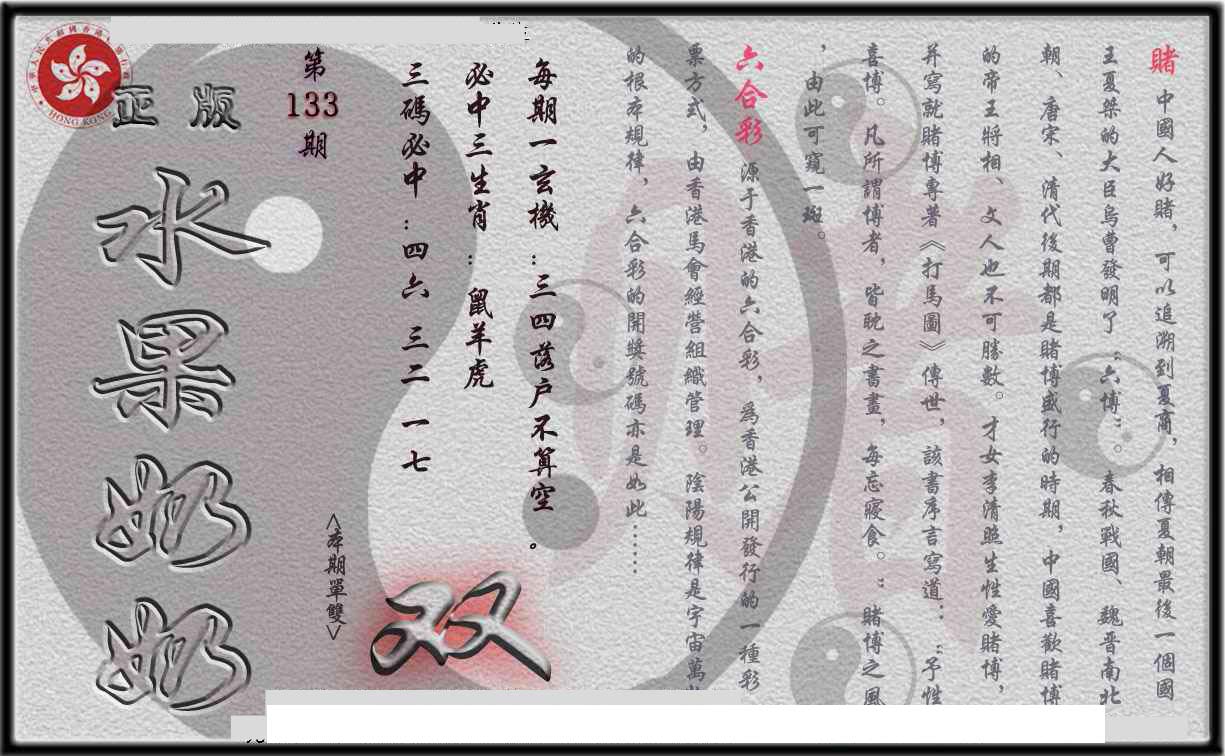 賭 中國人好賭，可以追溯到夏商，相傳夏朝最後一個國
王夏桀的大臣烏曹發明了“六博”。春秋戰國、魏晋南北
朝、唐宋、清代後期都是賭博盛行的時期，中國喜歡賭博
的帝王將相、文人也不可勝數。才女李清照生性愛賭博，
并寫就賭博專著《打馬圖》傳世，該書序言寫道：“予性
喜博。凡所謂博者，皆耽之書畫，每忘寢食。”賭博之風
，由此可窺一斑。
六合彩 源于香港的六合彩，爲香港公開發行的一種彩
票方式，由香港馬會經營組織管理。陰陽規律是宇宙萬
的根本規律，六合彩的開獎號碼亦是如此……
每期一玄機：三四落户不算空。
必中三生肖：鼠羊虎
三碼必中：四六 三二 一七
第
133
期
<本期單雙>
双
正版
水果奶奶
HONG KONG